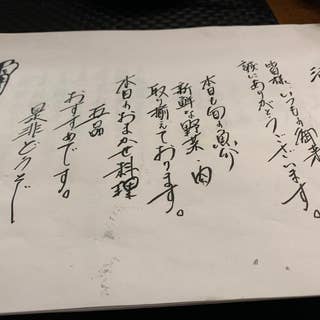 皆様 いつも御来
誠にありがとうございます。
本日も旬の魚介
新鮮な野菜・肉
取り揃えております。
本日のおまかせ料理
五品
おすすめです。
是非どうぞ